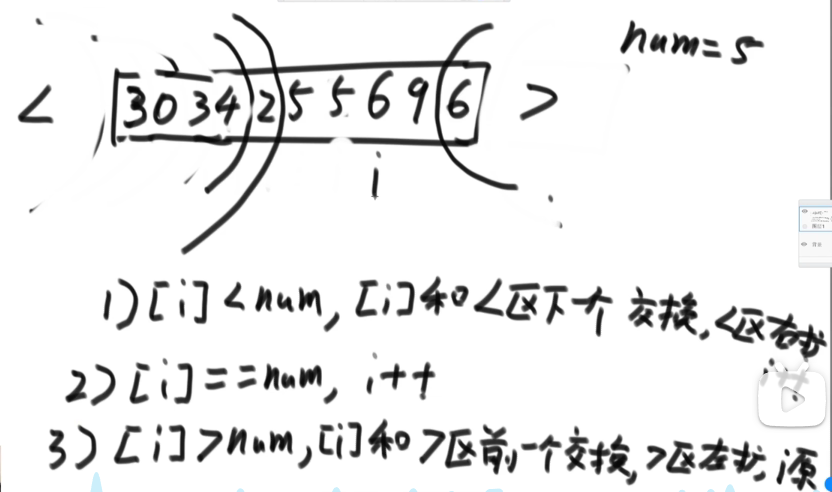 num=5
< 3034255696 >
i
1) [i] <num, [i]和<区下一个交换,<区右扩
i++
2) [i]==num, i++
3) [i]>num,[i]和>区前一个交换,>区左扩,i原